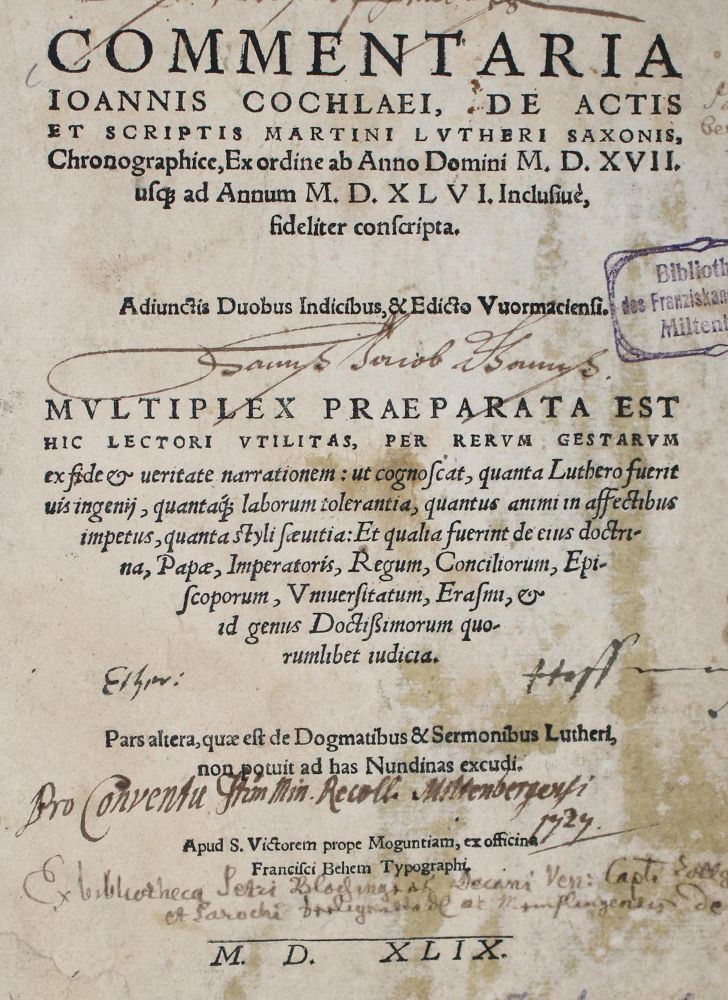 COMMENTARIA
IOANNIS COCHLAEI, DE ACTIS
ET SCRIPTIS MARTINI LVTHERI SAXONIS,
Chronographice, Ex ordine ab Anno Domini M. D. XVII.
usq; ad Annum M. D. XLVI. Inclusiuè,
fideliter conscripta.
Adiunctis Duobus Indicibus, & Edicto Vuormaciensi.
Biblioth
des Franziskan
Miltenb
Jacob
MVLTIPLEX PRAEPARATA EST
HIC LECTORI VTILITAS, PER RERVM GESTARVM
ex fide & veritate narrationem: ut cognoscat, quanta Luthero fuerit
uis ingenij, quantaq́; laborum tolerantia, quantus animi in affectibus
impetus, quanta styli sæuitia: Et qualia fuerint de eius doctri-
na, Papæ, Imperatoris, Regum, Conciliorum, Epi-
scoporum, Vniuersitatum, Erasmi, &
id genus Doctißimorum quo-
rumlibet iudicia.
Pars altera, quæ est de Dogmatibus & Sermonibus Lutheri,
non potuit ad has Nundinas excudi.
Pro Conventu Recoll. Miltenbergensi
1727.
Apud S. Victorem prope Moguntiam, ex officina
Francisci Behem Typographi.
Ex bibliotheca Petri Decani Ven: Capti
et Parochi
M. D. XLIX.